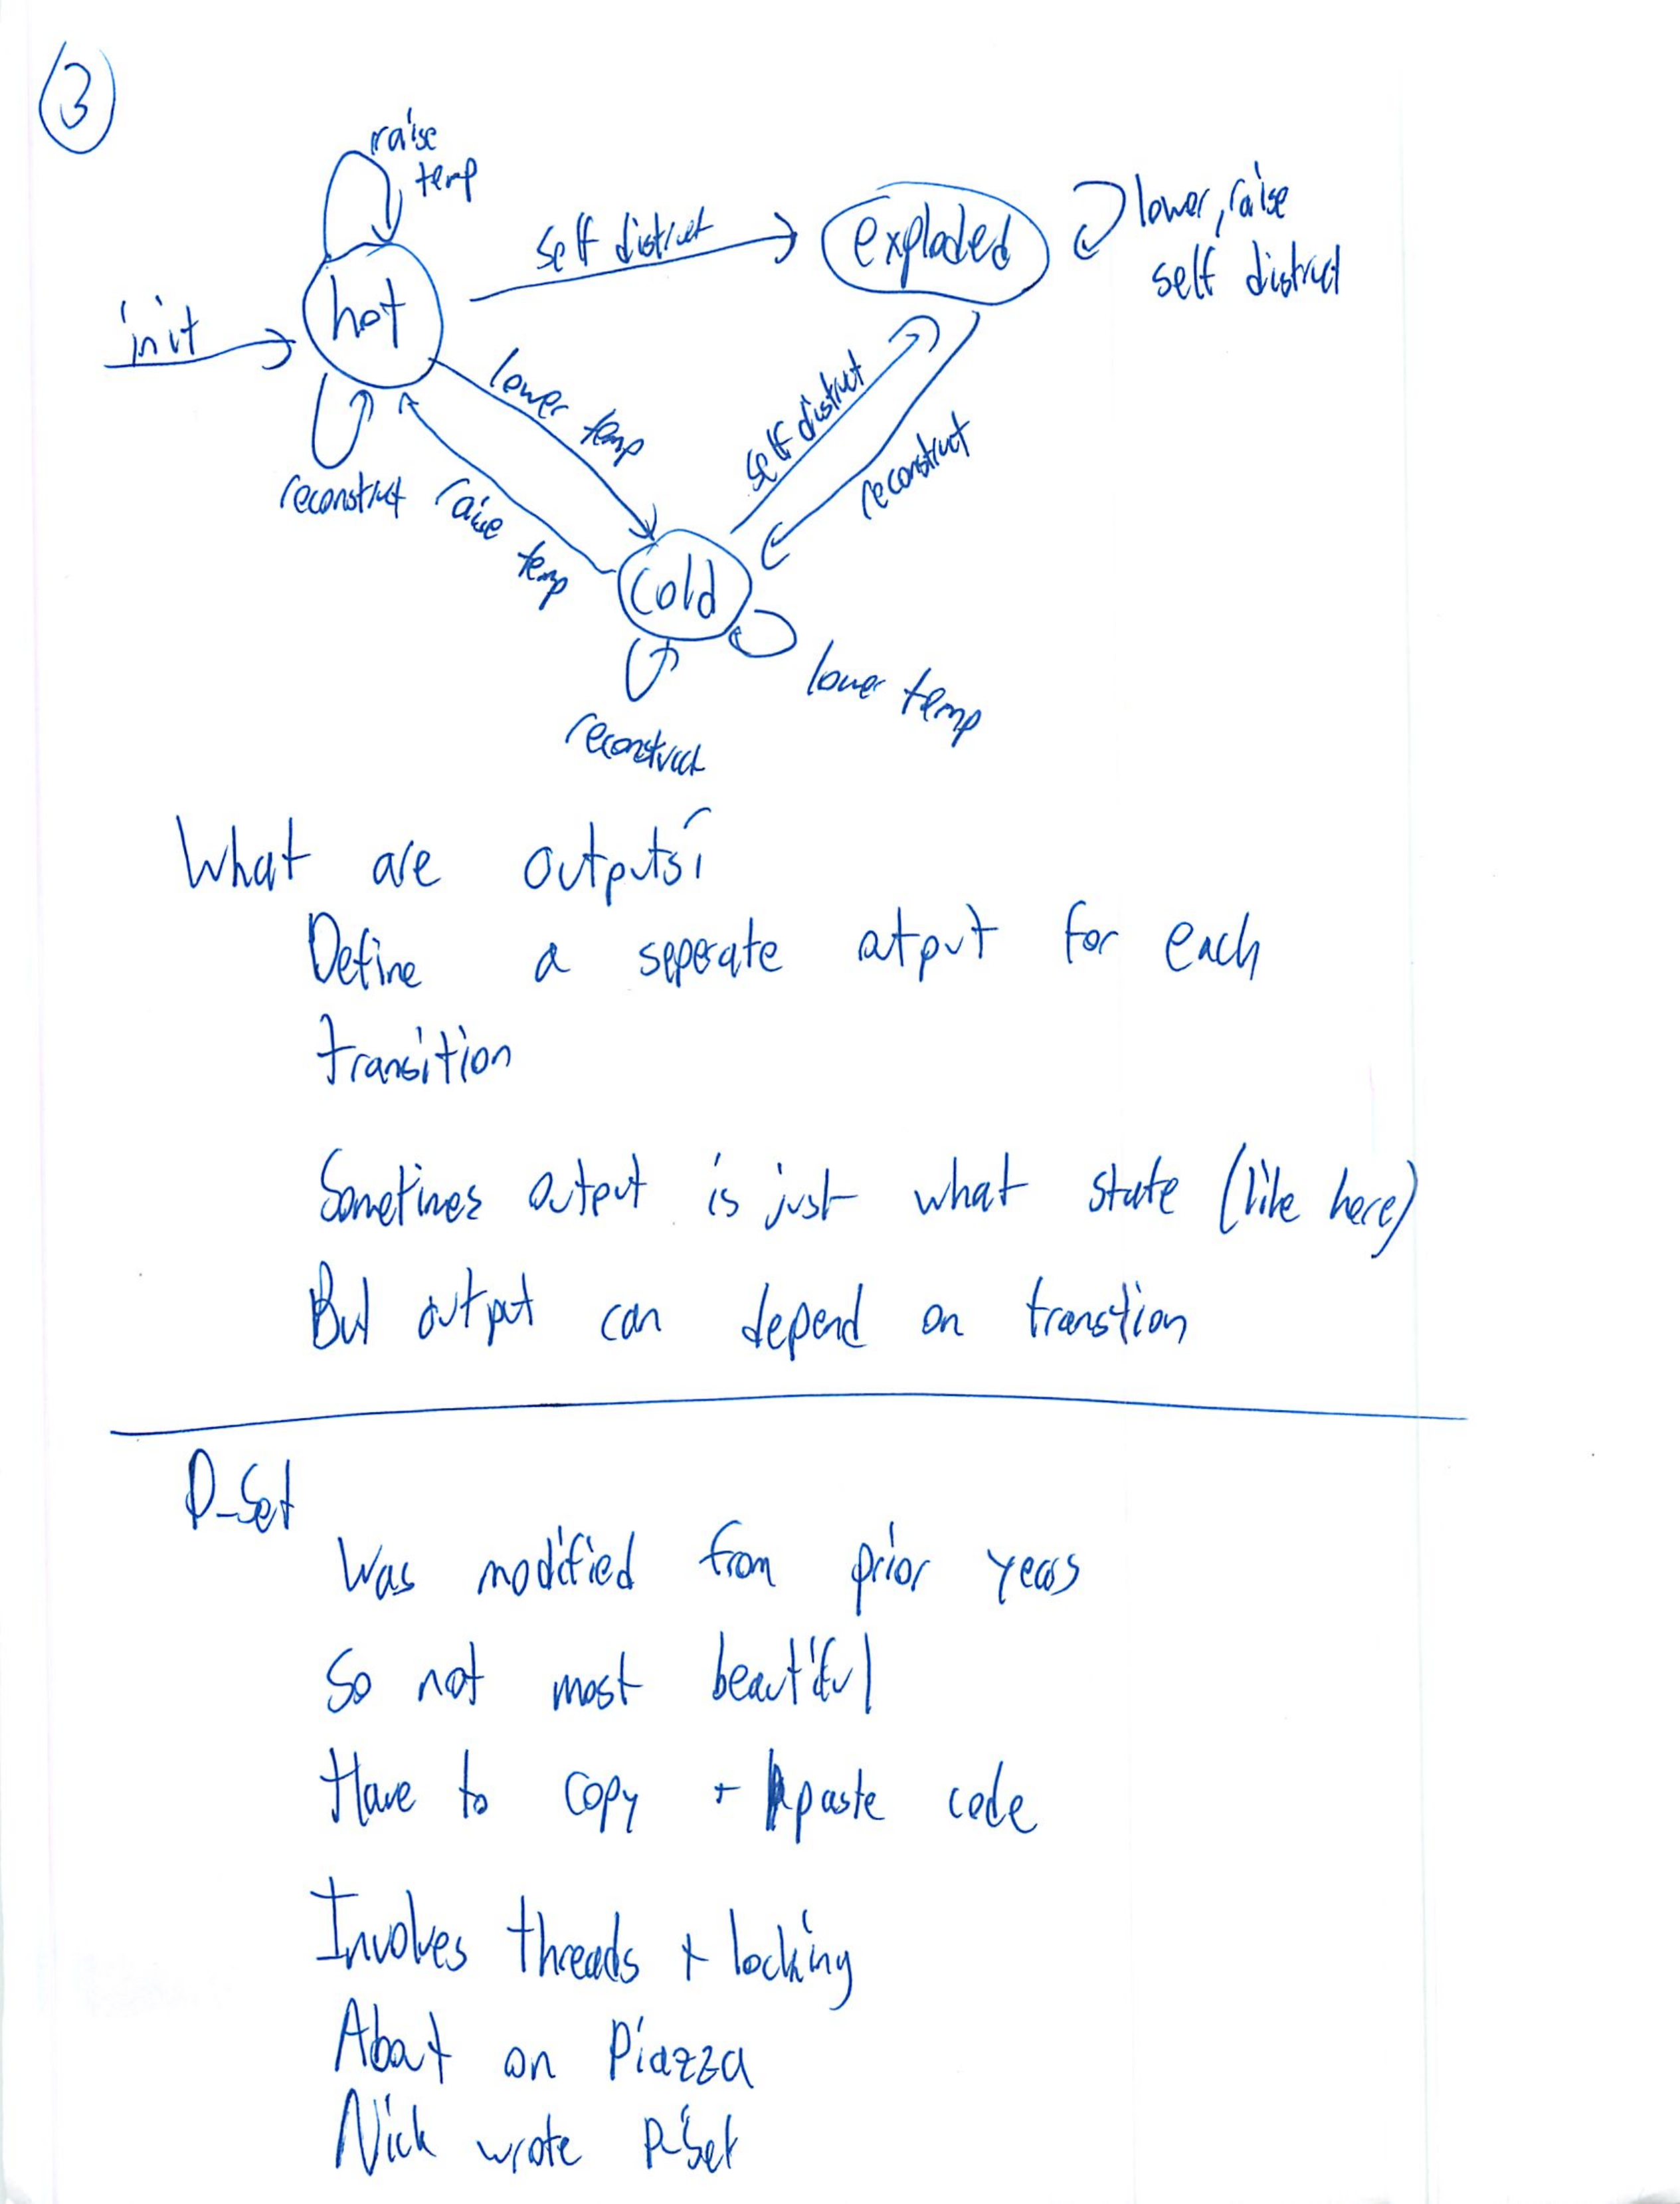 3
raise
temp
self distruct
exploded
lower, raise
self distruct
init
hot
lower temp
self distruct
reconstruct
reconstruct
raise
temp
cold
lower temp
reconstruct
What are outputs?
Define a seperate output for each
transition
Sometimes output is just what state (like here)
But output can depend on transtion
P-Set
Was modified from prior years
So not most beautiful
Have to copy + paste code
Involves threads + locking
About on Piazza
Nick wrote P-Set